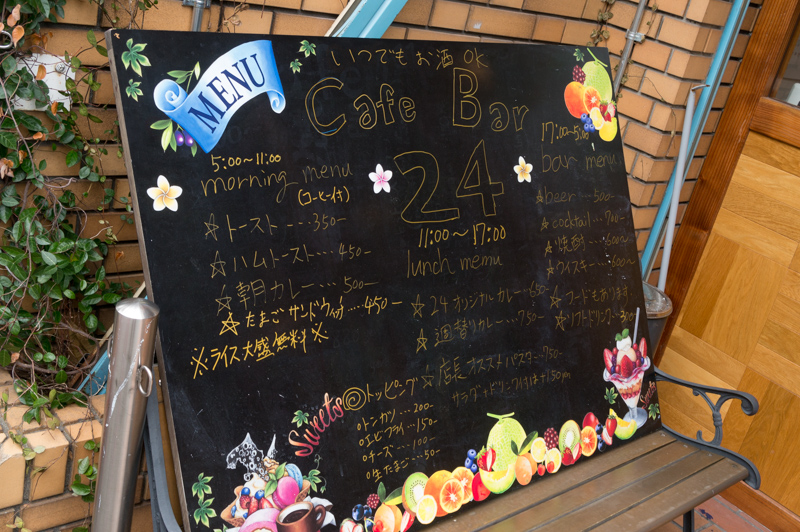 MENU
いつでもお酒 OK
Cafe Bar
24
5:00〜11:00
morning menu
(コーヒー付)
☆トースト....350-
☆ハムトースト....450-
☆朝カレー....500-
☆たまごサンドウィッチ....450-
※ライス大盛無料※
11:00〜17:00
lunch menu
☆24オリジナルカレー...650-
☆週替りカレー...750-
☆店長オススメパスタ...750-
サラダ+ドリンク付は+150yen
17:00〜5:00
bar menu
☆beer...500-
☆cocktail...700-
☆焼酎...600〜
☆ウイスキー...600〜
☆フードもあります
☆ソフトドリンク...300
Sweets
◎トッピング
○トンカツ...200-
○エビフライ...150-
○チーズ...100-
○生たまご...50-